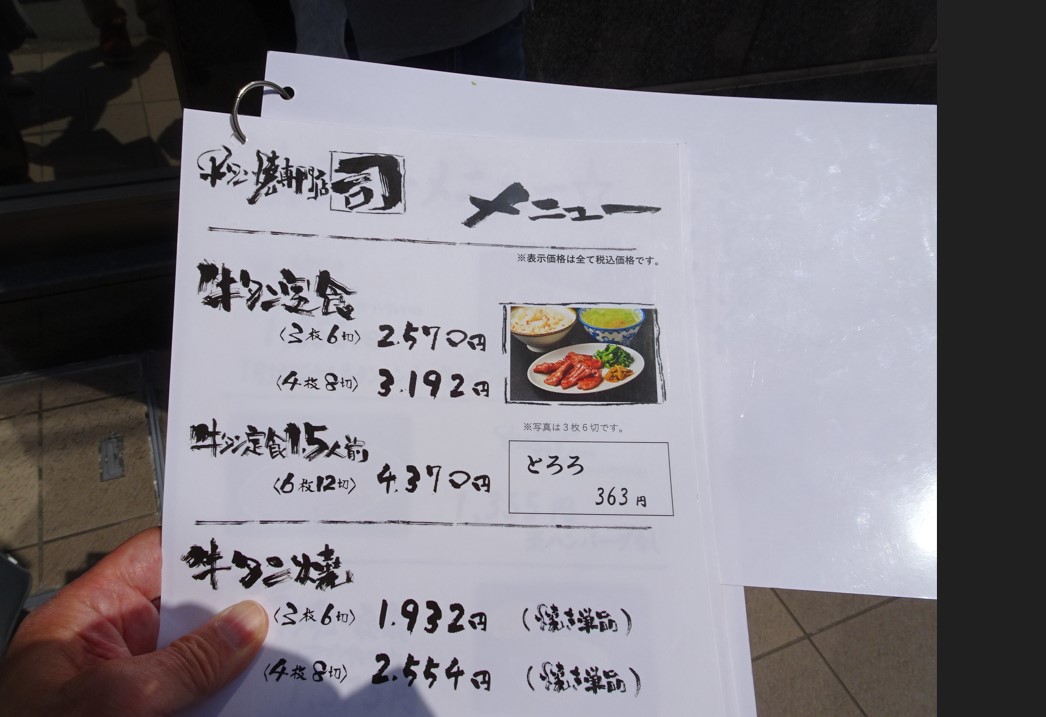 牛タン焼専門店 司
メニュー
※表示価格は全て税込価格です。
牛タン定食
〈3枚6切〉 2.570円
〈4枚8切〉 3.192円
※写真は3枚6切です。
牛タン定食1.5人前
〈6枚12切〉 4.370円
とろろ
363円
牛タン焼
〈3枚6切〉 1.932円 (焼き単品)
〈4枚8切〉 2.554円 (焼き単品)